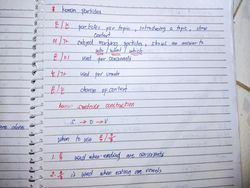 * korean particles
은/는 particles for topic, introducing a topic, show
contrast
이/가 subject marking particles, show an answer to
who / what / which
은/이 used for consonants
는/가 used for vowels
은/는 change of context
basic sentence construction
S → O → V
when to use 은/는
1. 은 used when ending are consonants
2. 는 is used when ending are vowels